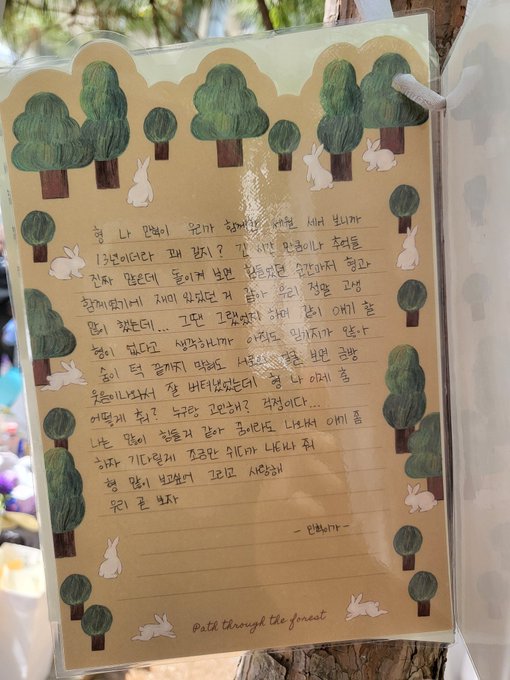 형 나 민혁이 우리가 함께한 세월 세어 보니까
13년이더라 꽤 길지? 긴 시간 만큼이나 추억들
진짜 많은데 돌이켜 보면 힘들었던 순간마저 형과
함께였기에 재미 있었던 거 같아 우리 정말 고생
많이 했는데... 그땐 그랬었지 하며 같이 얘기 할
형이 없다고 생각하니까 아직도 믿겨지가 않아
숨이 턱 끝까지 막혀도 서로의 얼굴 보면 금방
웃음이나와서 잘 버텨냈었는데 형 나 이제 춤
어떻게 춰? 누구랑 고민해? 걱정이다...
나는 많이 힘들거 같아 꿈이라도 나와서 얘기 좀
하자 기다릴게 조금만 쉬다가 나타나 줘
형 많이 보고싶어 그리고 사랑해
우리 곧 보자
- 민혁이가 -
Path through the forest